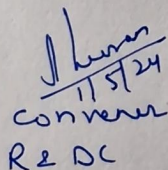 11/5/24
Convener
R & DC